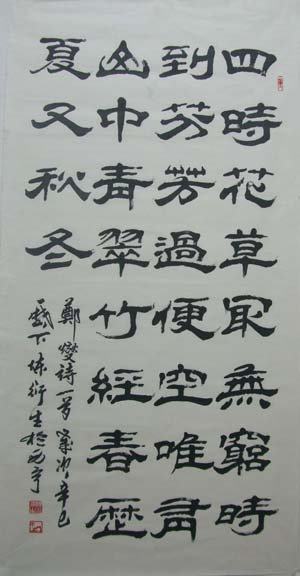 四時花草冣無窮時
到芬芳過便空唯有
山中青翠竹經春歴
夏又秋冬
鄭燮詩一首歲次辛巳